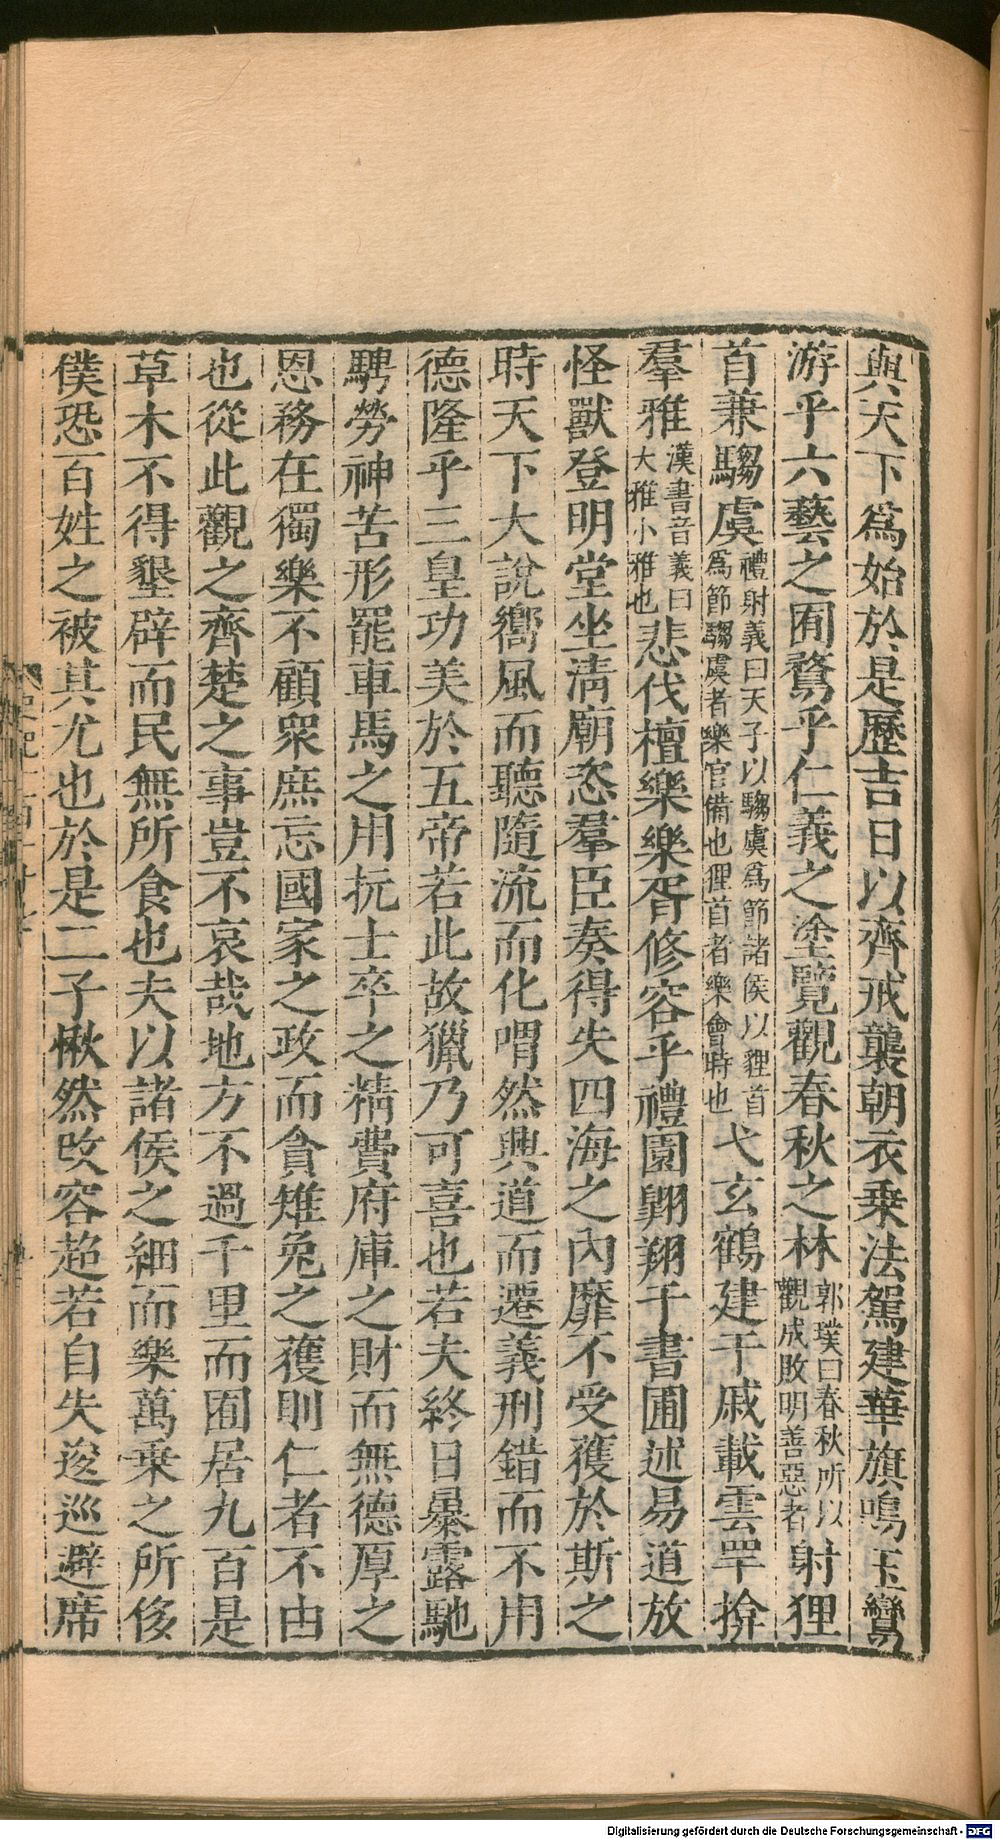 與天下爲始於是歷吉日以齊戒襲朝衣乗法駕建華旗鳴玉鸞
游乎六藝之囿鶩乎仁義之塗覽觀春秋之林郭璞曰春秋所以觀成敗明善惡者射狸
首兼騶虞禮射義曰天子以騶虞爲節諸侯以貍首爲節騶虞者樂官備也狸首者樂會時也弋玄鶴建干戚載雲䍐揜
羣雅漢書音義曰大雅小雅也悲伐檀樂樂胥修容乎禮園翺翔于書圃述易道放
怪獸登明堂坐淸廟恣羣臣奏得失四海之內靡不受獲於斯之
時天下大說嚮風而聽隨流而化喟然興道而遷義刑錯而不用
德隆乎三皇功羙於五帝若此故獵乃可喜也若夫終日暴露馳
騁勞神苦形罷車馬之用抏士卒之精費府庫之財而無德厚之
恩務在獨樂不顧衆庶忘國家之政而貪雉兔之獲則仁者不由
也從此觀之齊楚之事豈不哀哉地方不過千里而囿居九百是
草木不得墾辟而民無所食也夫以諸侯之細而樂萬乗之所侈
僕恐百姓之被其尤也於是二子愀然改容超若自失逡巡避席
Digitalisierung gefördert durch die Deutsche Forschungsgemeinschaft - DFG